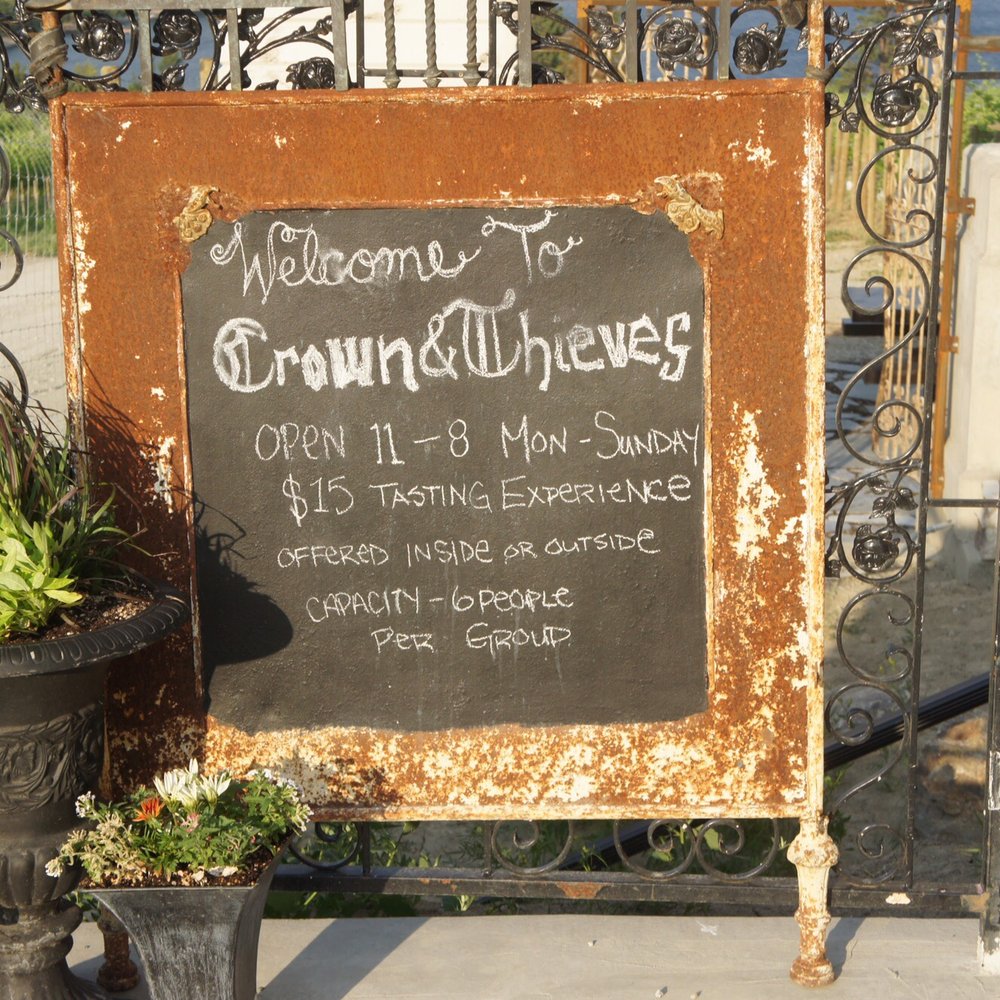 Welcome To
Crown & Thieves
OPEN 11 - 8 MON - SUNDAY
$15 TASTING EXPERIENCE
OFFERED INSIDE OR OUTSIDE
CAPACITY - 6 PEOPLE
PER GROUP